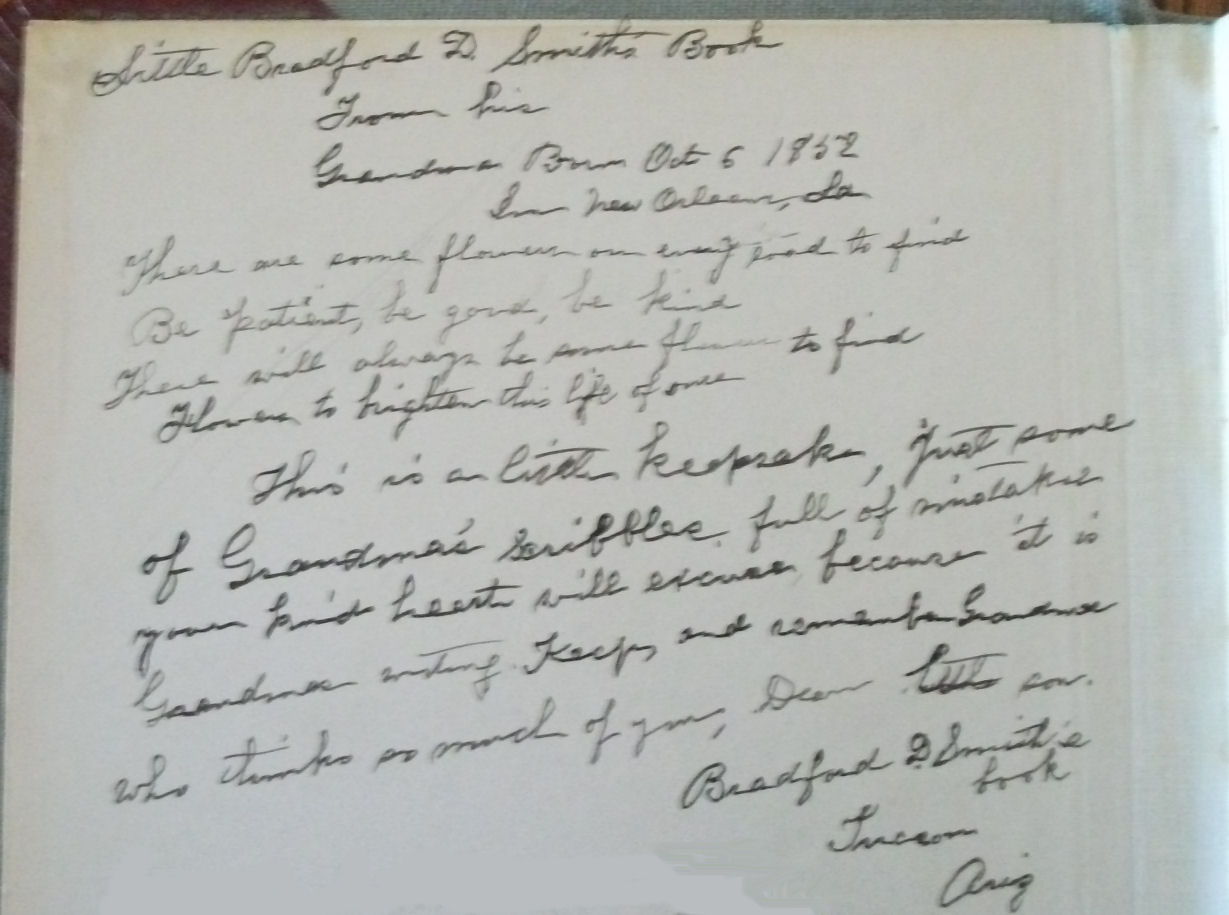 Little Bradford D. Smith's Book
From his
Grandma Born Oct 6 1852
In New Orleans, La
There are some flowers on every road to find
Be patient, be good, be kind
There will always be some flowers to find
Flowers to brighten this life of ours
This is a little keepsake, just some
of Grandma's scribbles, full of mistakes
your kind heart will excuse because it is
Grandmas writing. Keep, and remember Grandma
who thinks so much of you, Dear little son.
Bradford D Smith's
book
Tucson
Ariz